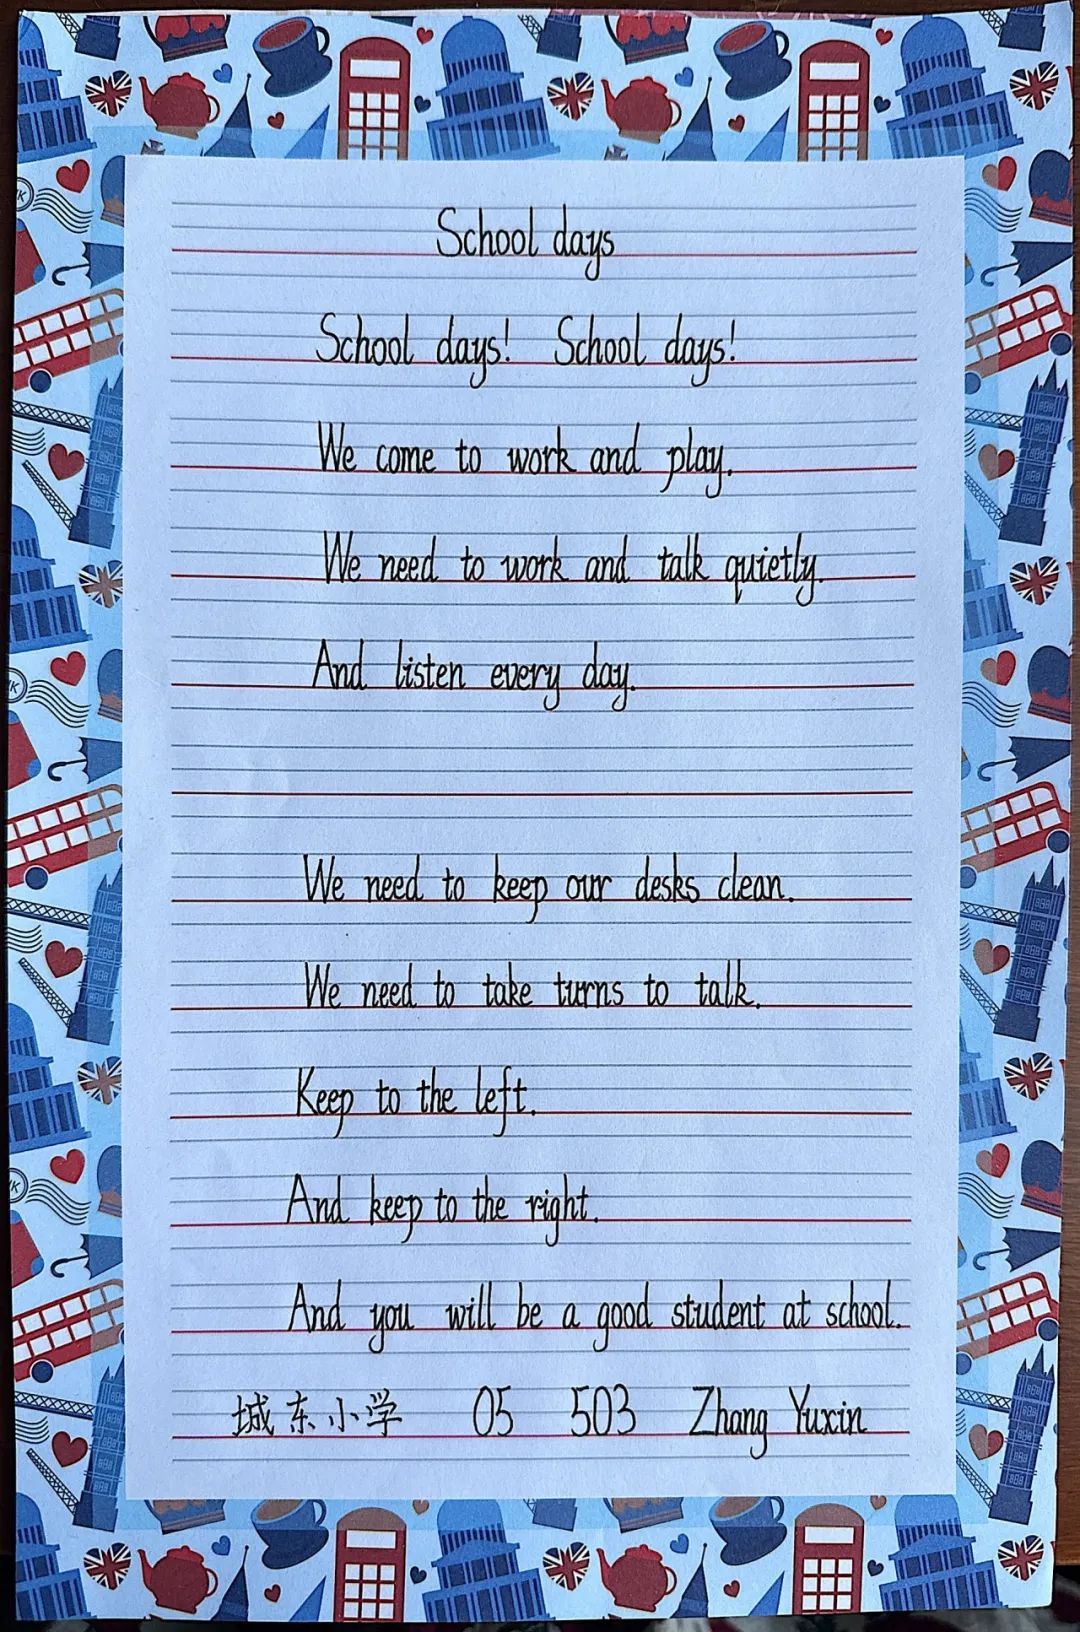 School days
School days! School days!
We come to work and play.
We need to work and talk quietly.
And listen every day.
We need to keep our desks clean.
We need to take turns to talk.
Keep to the left.
And keep to the right.
And you will be a good student at school.
城东小学 05 503 Zhang Yuxin